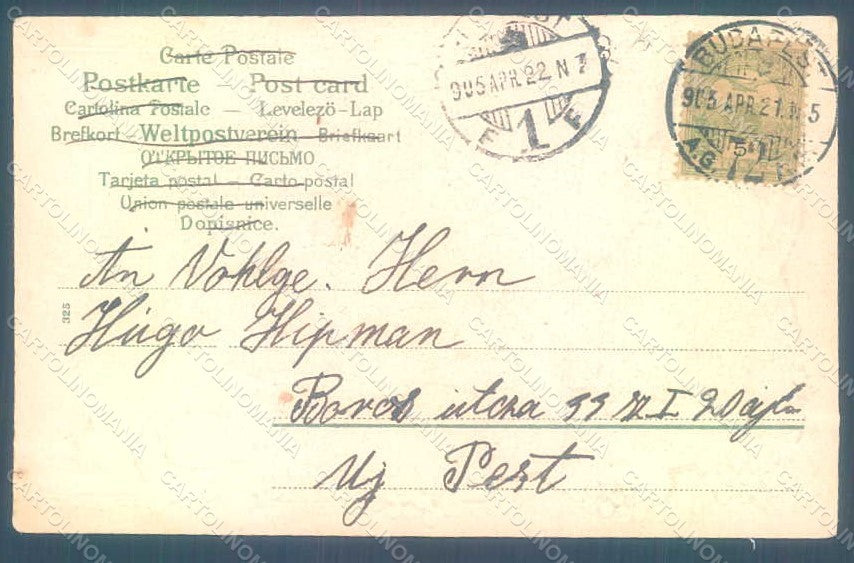 Carte Postale
Postkarte – Post card
Cartolina Postale – Levelezö-Lap
Brefkort – Weltpostverein – Briefkaart
ОТКРЫТОЕ ПИСЬМО
Tarjeta postal – Carto postal
Union postale universelle
Dopisnice.
905 APR. 22. N 7
1
BUDAPEST
905 APR. 21. N 5
72
325
An Vohlge. Herrn
Hugo Hipman
Boros utcza 99 I 20 ajtó
Uj Pest
CARTOLINOMANIA